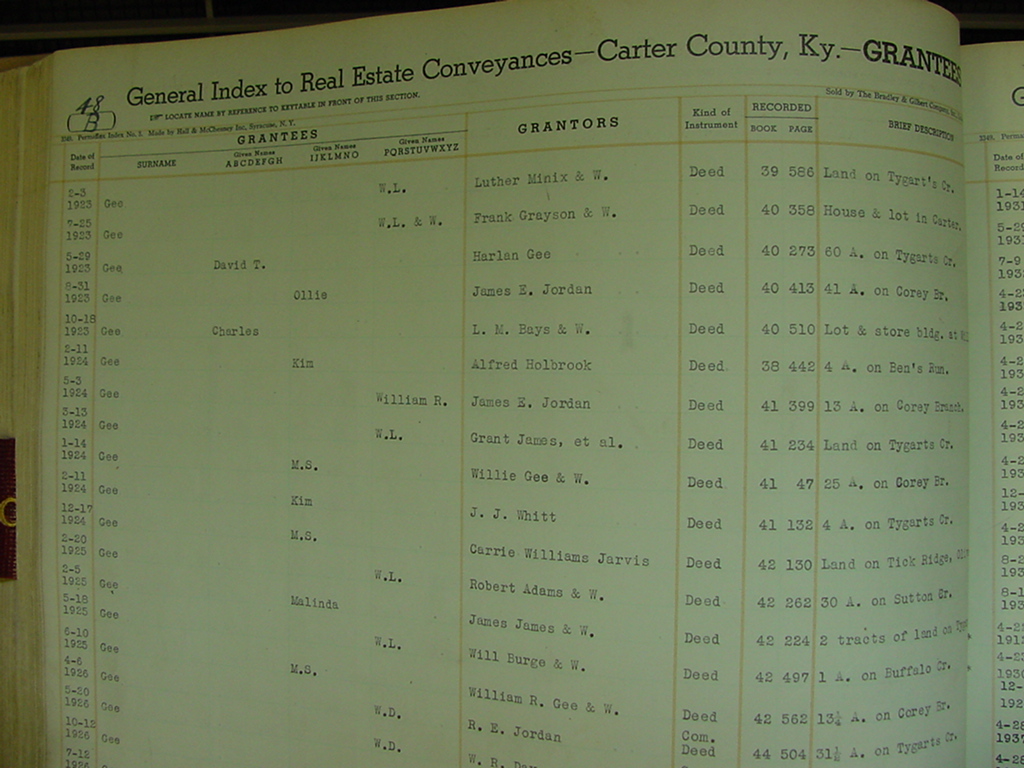 48
B
General Index to Real Estate Conveyances—Carter County, Ky.—GRANTEES
LOCATE NAME BY REFERENCE TO KEYTABLE IN FRONT OF THIS SECTION.
Made by Hall & McChesney Inc, Syracuse, N. Y.
Sold by The Bradley & Gilbert Company,
GRANTEES GRANTORS Kind of Instrument RECORDED BRIEF DESCRIPTION
Date of Record SURNAME Given Names ABCDEFGH Given Names IJKLMNO Given Names PQRSTUVWXYZ BOOK PAGE
2-3 1923 Gee W.L. Luther Minix & W. Deed 39 586 Land on Tygart's Cr.
7-25 1923 Gee W.L. & W. Frank Grayson & W. Deed 40 358 House & lot in Carter.
5-29 1923 Gee David T. Harlan Gee Deed 40 273 60 A. on Tygarts Cr.
8-31 1923 Gee Ollie James E. Jordan Deed 40 413 41 A. on Corey Br.
10-18 1923 Gee Charles L. M. Bays & W. Deed 40 510 Lot & store bldg. at
2-11 1924 Gee Kim Alfred Holbrook Deed 38 442 4 A. on Ben's Run.
5-3 1924 Gee William R. James E. Jordan Deed 41 399 13 A. on Corey Branch.
3-13 1924 Gee W.L. Grant James, et al. Deed 41 234 Land on Tygarts Cr.
1-14 1924 Gee M.S. Willie Gee & W. Deed 41 47 25 A. on Corey Br.
2-11 1924 Gee Kim J. J. Whitt Deed 41 132 4 A. on Tygarts Cr.
12-17 1924 Gee M.S. Carrie Williams Jarvis Deed 42 130 Land on Tick Ridge,
2-20 1925 Gee W.L. Robert Adams & W. Deed 42 262 30 A. on Sutton Cr.
2-5 1925 Gee Malinda James James & W. Deed 42 224 2 tracts of land on
5-18 1925 Gee W.L. Will Burge & W. Deed 42 497 1 A. on Buffalo Cr.
6-10 1925 Gee M.S. William R. Gee & W. Deed 42 562 13¼ A. on Corey Br.
4-6 1926 Gee W.D. R. E. Jordan Com. Deed 44 504 31½ A. on Tygarts Cr.
5-20 1926 Gee W.D. W. R.
10-12 1926 Gee
7-12 1926
Date of Record
1-14
5-29
7-9